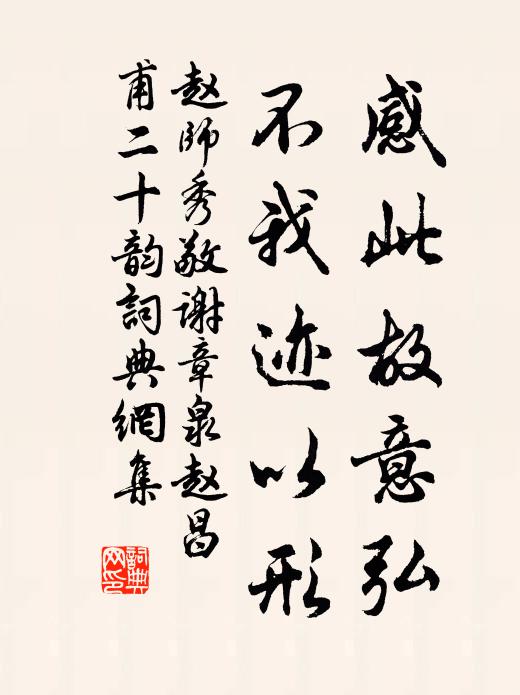 感此故意弘
不我迹以形
赵師秀敬谢章泉赵昌
甫二十韵詞典網集
詞典
网印